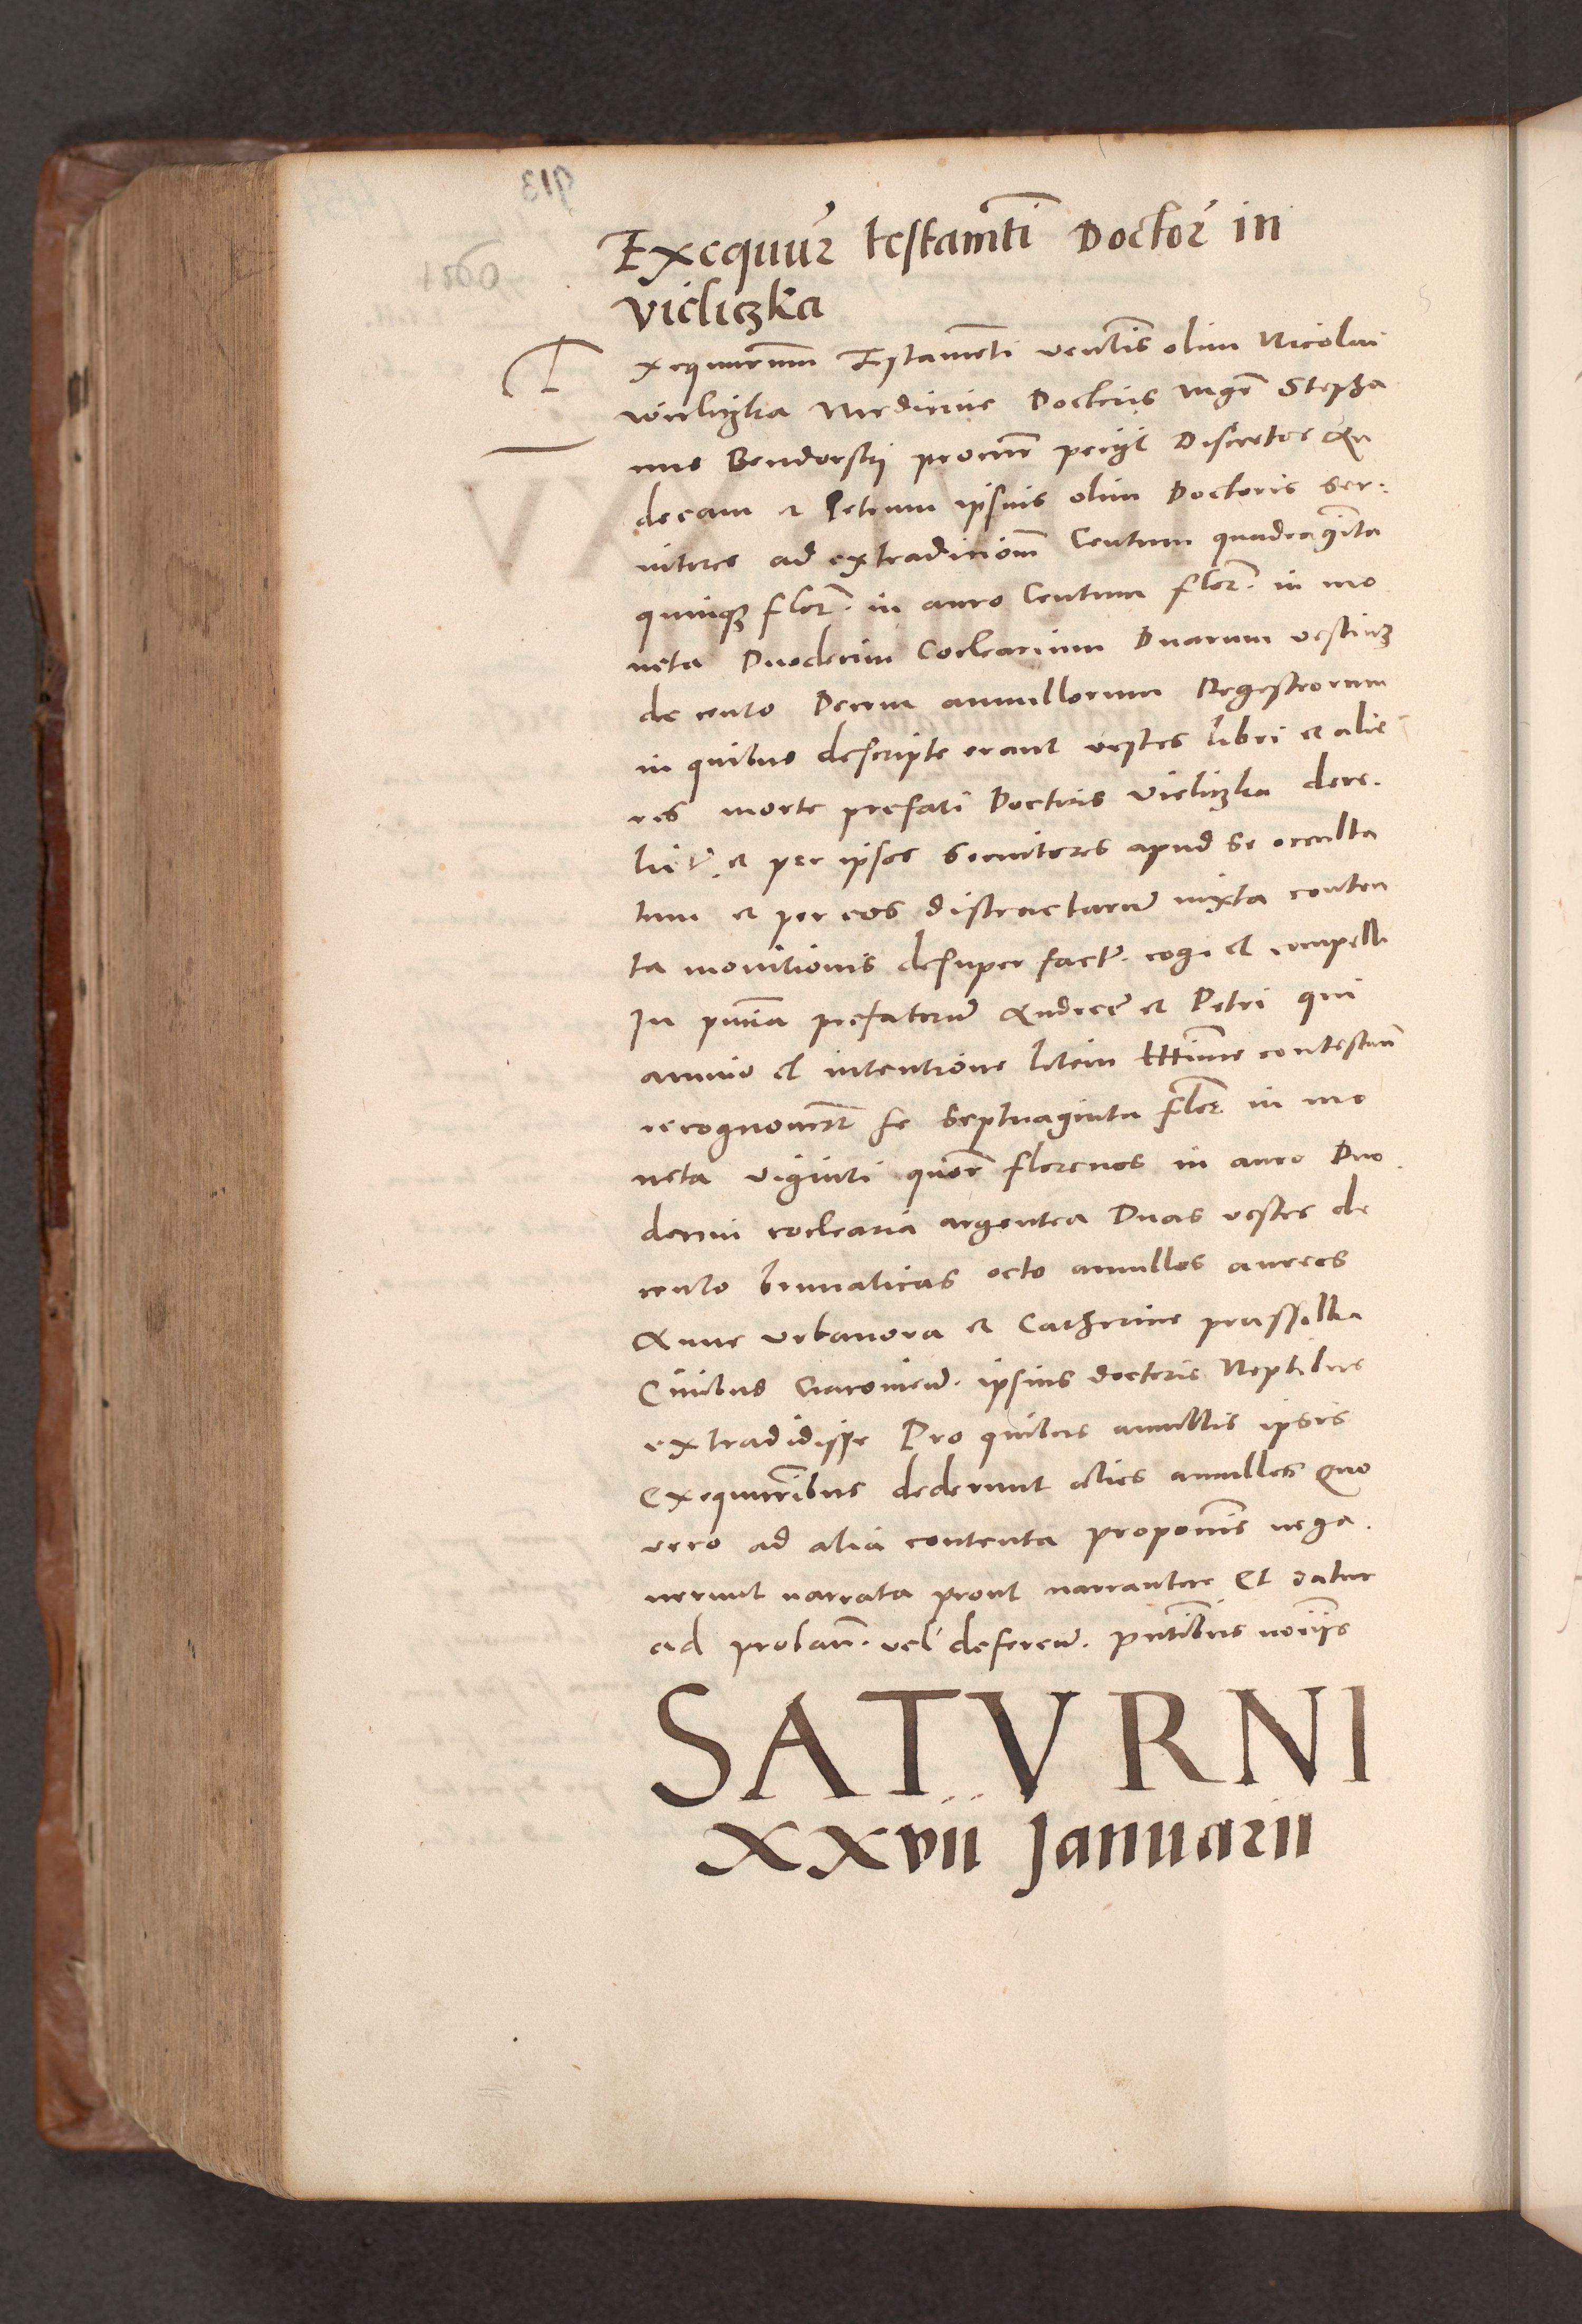 Exequutor̃ testamti Doctor̃ in
vieliczka
Exequutorum Testamẽti venlis olim Nicolai
wieliczka Medicine Doctoris Mgr̃ Stepha
nus Bendorski procur̃ peciit Discretos An
dream et Petrum ipsius olim Doctoris ser:
vitores ad extradicionẽ Centum quadraginta
quinqȝ flor̃. in auro Centum flor̃. in mo
neta Duodecim Coclearium Duarum vestiuȝ
de Decem annullorum Regestrorum
in quibus descripte erant vestes libri et alie
res morte prefati Doctoris vieliczka dere.
lict̃. et per ipsos servitores apud se occulta
tum et per eos distractarũ iuxta conten
ta monitionis desuper fact̃. cogi et compelli
In pñtia prefatorũ Andreẽ et Petri qui
animo et intentione litem contestañ
recognoverũt se Septuaginta flor̃ in mo
neta viginti quor̃ florenos in auro Duo
decim coclearia argentea Duas vestes de
brunaticas octo annullos aureos
Anne vrbanova et Catherine
Civibus Cracovieñ. ipsius doctoris Neptibus
extradidisse Pro quibus annullis ipsis
Exequutoribus dederunt alios annullos Quo
vero ad alia contenta propoĩnis nega.
verunt narrata prout narrantur Et datur
ad probañ. vel defereñ. pñtibus
SATVRNI
xxvii Januarii
913